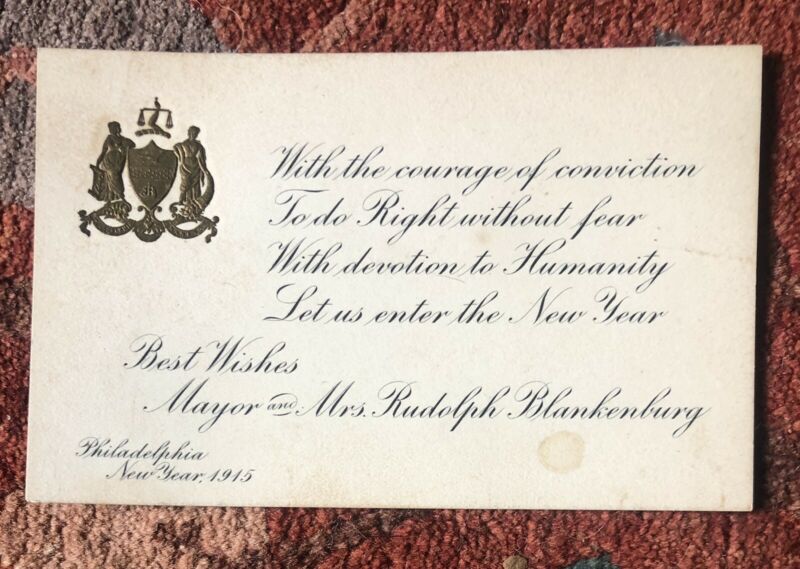 With the courage of conviction
To do Right without fear
With devotion to Humanity
Let us enter the New Year
Best Wishes
Mayor and Mrs. Rudolph Blankenburg
Philadelphia
New Year, 1915